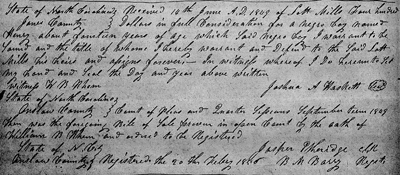 State of North Carolina Received 10th June A.D. 1849 of Lott Mills Four hundred
Jones County Dollars in full Consideration for a negro boy named
Henry about fourteen years of age which Said Negro boy I warrant to be
Sound and the title of whome I hereby warrant and Defend to the Said Lott
Mills his heirs and assigns forever. In witness whereof I do hereunto Set
my hand and Seal the Day and year above written
Witness W B Whem Joshua A Haskett Seal
State of North Carolina
Onslow County Court of Pleas and Quarter Sessions September term 1849
then was the foregoing Bill of Sale Proven in open Court by the oath of
William B Whem and ordred to be Registered
State of N. Jasper Etheridge Clk
Onslow County Registered the 20th Feby B M Barry Regst.